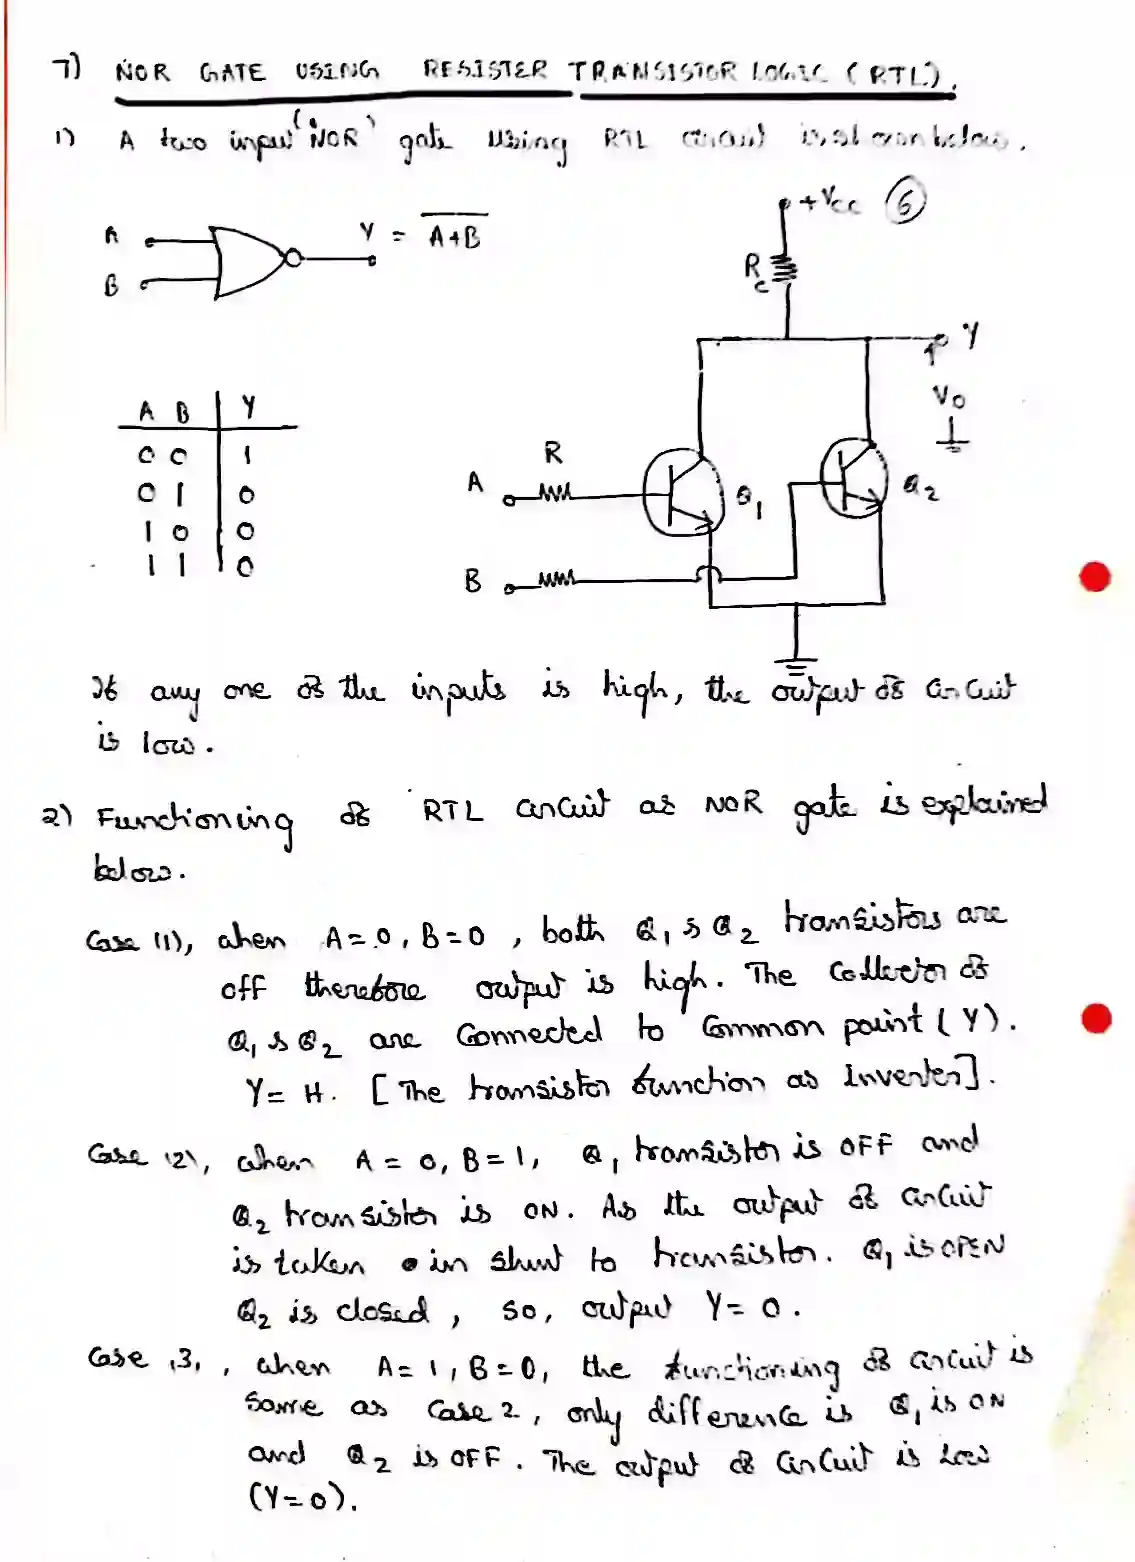 7) NOR GATE USING RESISTER TRANSISTOR LOGIC (RTL).
1) A two input 'NOR' gate using RTL circuit is shown below.
+Vcc 6
A Y = A+B
B
Rc
Y
Vo
A B Y
0 0 1
0 1 0
1 0 0
1 1 0
R
A Q1 Q2
B
If any one of the inputs is high, the output of circuit
is low.
2) Functioning of RTL circuit as NOR gate is explained
below.
Case (1), when A=0, B=0, both Q1 & Q2 transistors are
off therefore output is high. The Collector of
Q1 & Q2 are Connected to Common point (Y).
Y= H. [The transistor function as Inverter].
Case (2), when A = 0, B=1, Q1 transistor is OFF and
Q2 transistor is ON. As the output of circuit
is taken in shunt to transistor. Q1 is OPEN
Q2 is closed, so, output Y= 0.
Case (3), when A= 1, B=0, the functioning of circuit is
Same as Case 2, only difference is Q1 is ON
and Q2 is OFF. The output of Circuit is Low
(Y=0).